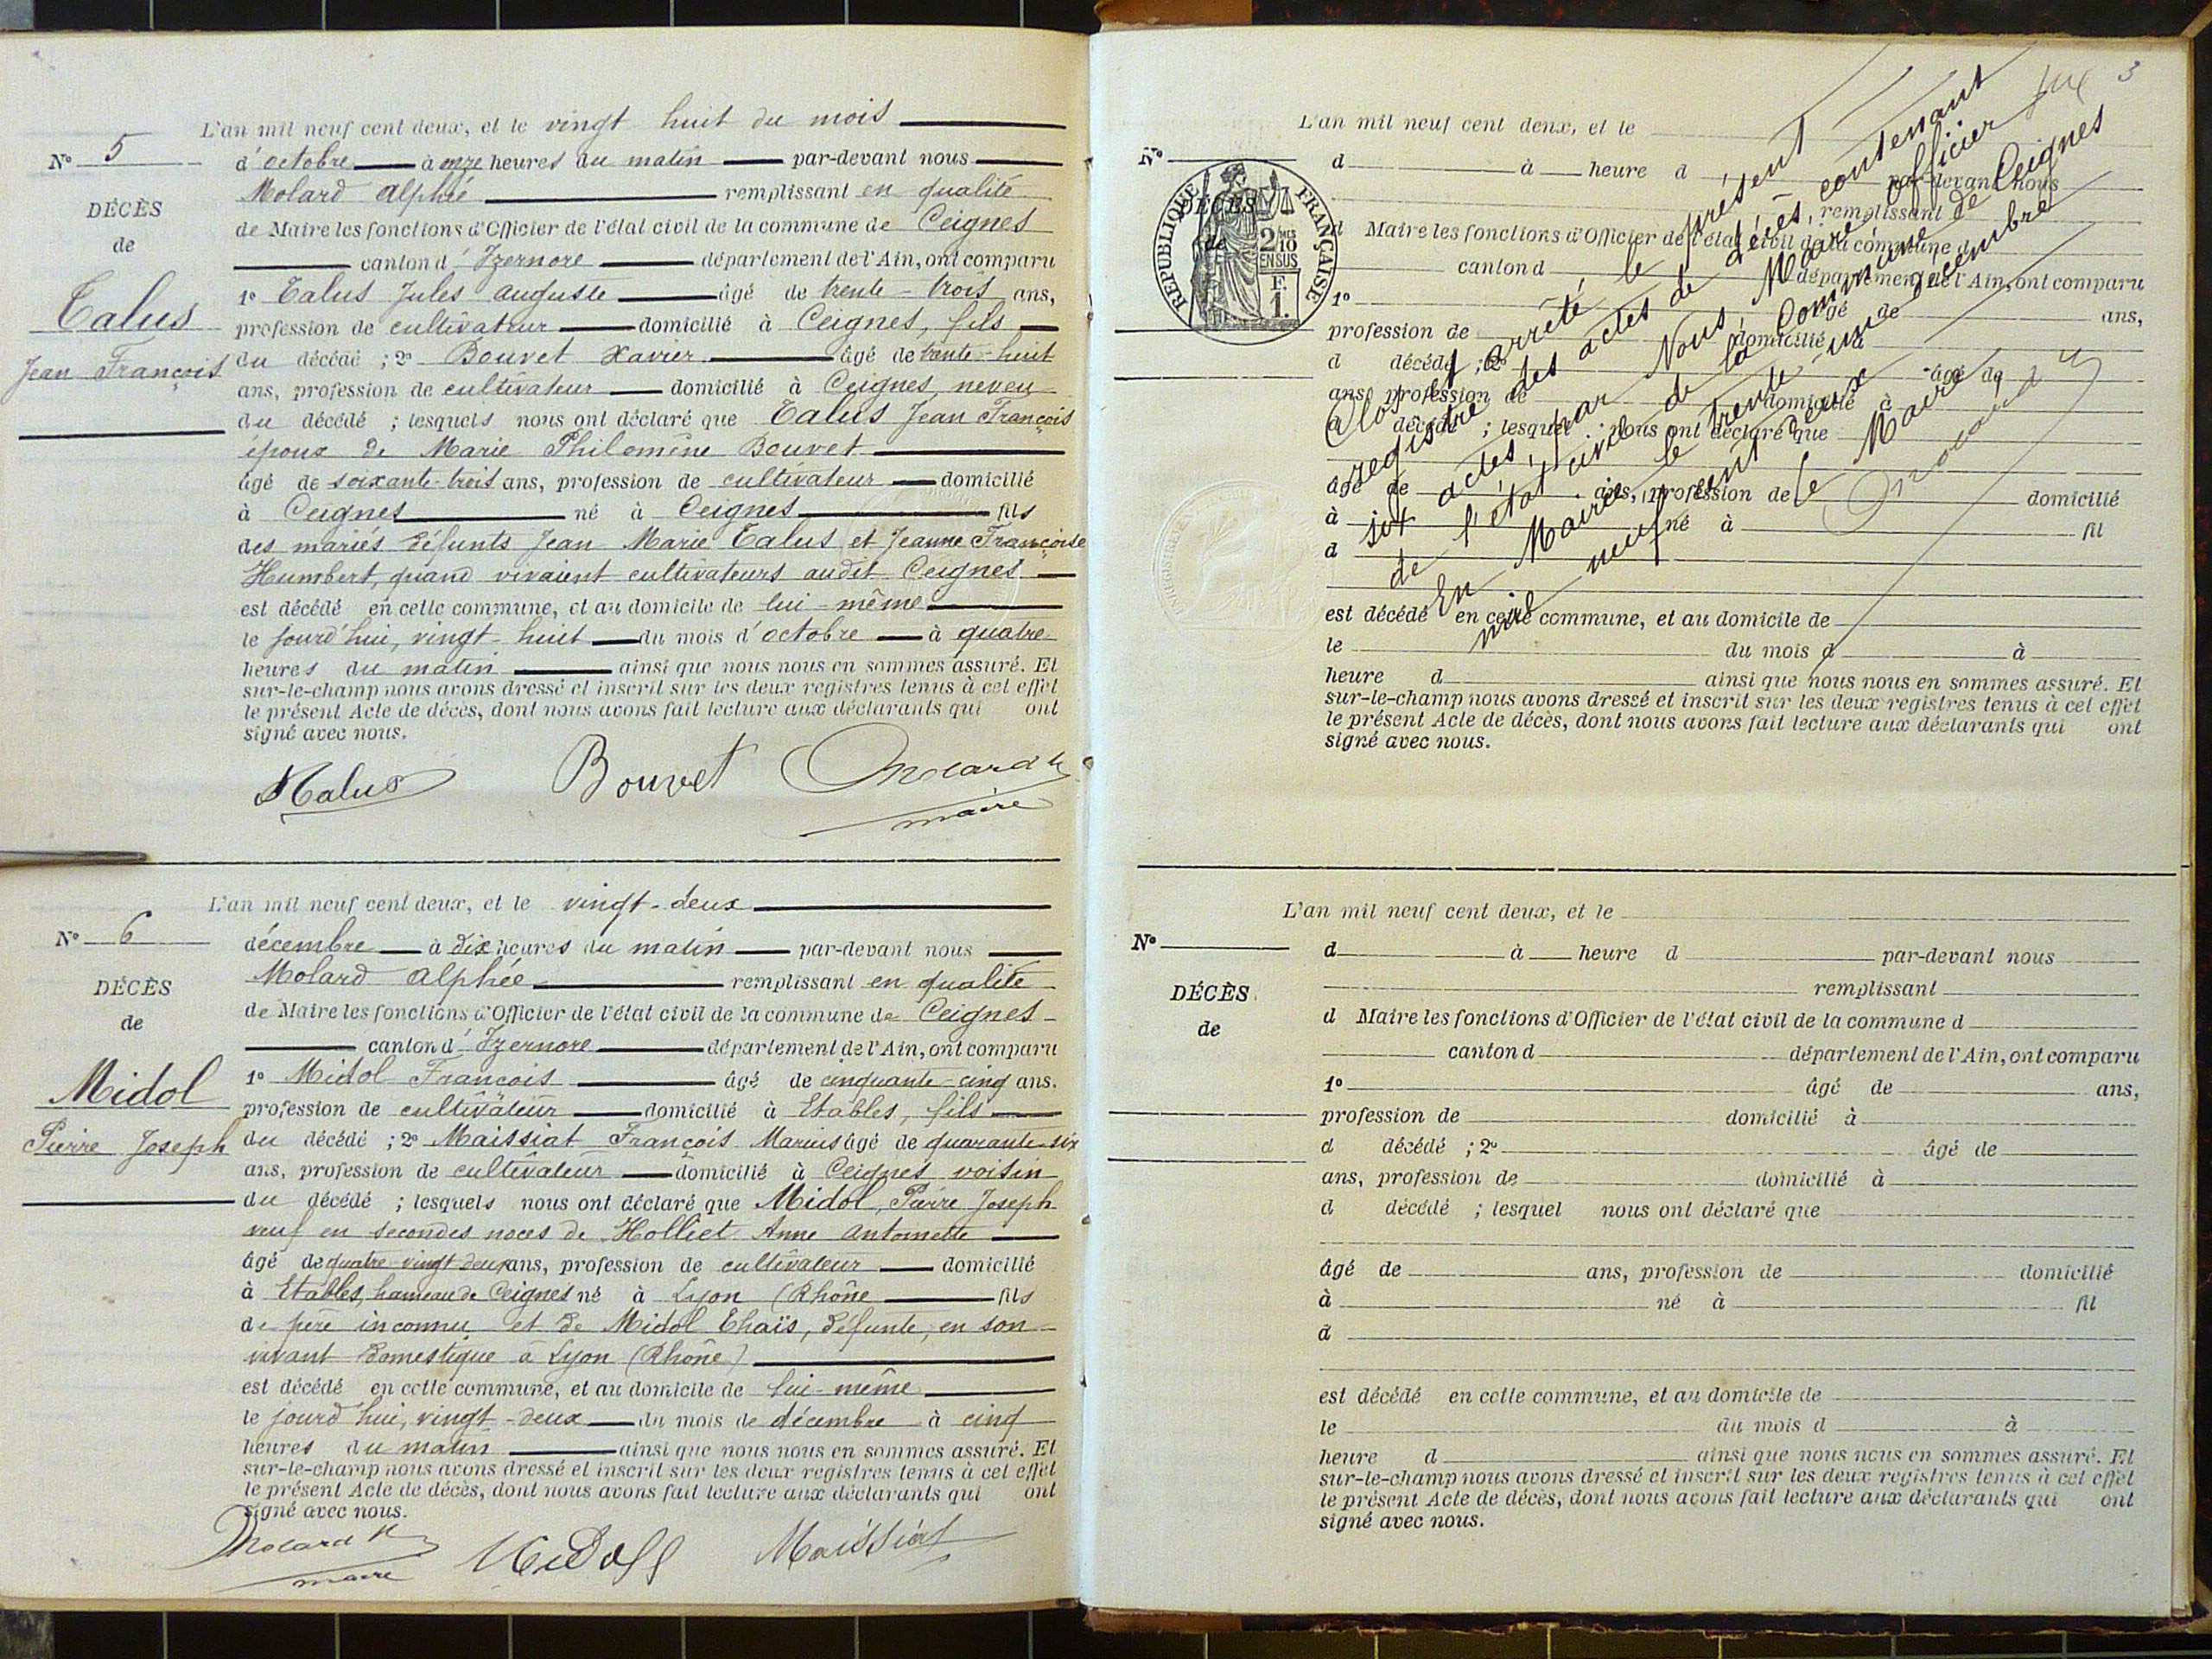 L'an mil neuf cent deux, et le vingt huit du mois
N° 5
d'octobre à onze heures du matin par-devant nous
Molard Alphée remplissant en qualité
DÉCÈS
de Maire les fonctions d'Officier de l'état civil de la commune de Ceignes
de
canton d'Izernore département de l'Ain, ont comparu
1° Talus Jules Auguste âgé de trente-trois ans,
Talus
profession de cultivateur domicilié à Ceignes, fils
Jean François
du décédé ; 2° Bouvet Xavier âgé de trente-huit
ans, profession de cultivateur domicilié à Ceignes, neveu
du décédé ; lesquels nous ont déclaré que Talus Jean François
époux de Marie Philomène Bouvet
âgé de soixante-trois ans, profession de cultivateur domicilié
à Ceignes né à Ceignes fils
des mariés défunts Jean Marie Talus et Jeanne Françoise
Humbert, quand vivaient cultivateurs audit Ceignes
est décédé en cette commune, et au domicile de lui-même
le jourd'hui, vingt-huit du mois d'octobre à quatre
heures du matin ainsi que nous nous en sommes assuré. Et
sur-le-champ nous avons dressé et inscrit sur les deux registres tenus à cet effet
le présent Acte de décès, dont nous avons fait lecture aux déclarants qui ont
signé avec nous.
Talus Bouvet Molard
maire
L'an mil neuf cent deux, et le vingt-deux
N° 6
décembre à dix heures du matin par-devant nous
Molard Alphée remplissant en qualité
DÉCÈS
de Maire les fonctions d'Officier de l'état civil de la commune de Ceignes
de
canton d'Izernore département de l'Ain, ont comparu
1° Midol François âgé de cinquante-cinq ans.
Midol
profession de cultivateur domicilié à Etables, fils
Pierre Joseph
du décédé ; 2° Maissiat François Marius âgé de quarante-six
ans, profession de cultivateur domicilié à Ceignes voisin
du décédé ; lesquels nous ont déclaré que Midol, Pierre Joseph
veuf en secondes noces de Holliet Anne Antoinette
âgé de quatre-vingt-deux ans, profession de cultivateur domicilié
à Etables, hameau de Ceignes né à Lyon (Rhône fils
de père inconnu et de Midol Thaïs, défunte, en son
vivant domestique à Lyon (Rhône)
est décédé en cette commune, et au domicile de lui-même
le jourd'hui, vingt-deux du mois de décembre à cinq
heures du matin ainsi que nous nous en sommes assuré. Et
sur-le-champ nous avons dressé et inscrit sur les deux registres tenus à cet effet
le présent Acte de décès, dont nous avons fait lecture aux déclarants qui ont
signé avec nous.
Molard Midol Maissiat
maire
3
L'an mil neuf cent deux, et le
N°
d à heure d par-devant nous
remplissant
DÉCÈS
de
d Maire les fonctions d'Officier de l'état civil de la commune d
canton d département de l'Ain, ont comparu
1° âgé de ans,
profession de domicilié à
d décédé ; 2° âgé de
ans, profession de domicilié à
d décédé ; lesquel nous ont déclaré que
âgé de ans, profession de domicilié
à né à fil
d
est décédé en cette commune, et au domicile de
le du mois d à
heure d ainsi que nous nous en sommes assuré. Et
sur-le-champ nous avons dressé et inscrit sur les deux registres tenus à cet effet
le présent Acte de décès, dont nous avons fait lecture aux déclarants qui ont
signé avec nous.
RÉPUBLIQUE FRANÇAISE
2 MES
10
EN SUS
F.
1.
Clos et arrêté le présent
registre des actes de décès, contenant
six actes, par Nous, Maire officier
de l'état civil de la commune de Ceignes
En Mairie le trente-un décembre
mil neuf cent deux
Le Maire
Molard
L'an mil neuf cent deux, et le
N°
d à heure d par-devant nous
remplissant
DÉCÈS
de
d Maire les fonctions d'Officier de l'état civil de la commune d
canton d département de l'Ain, ont comparu
1° âgé de ans,
profession de domicilié à
d décédé ; 2° âgé de
ans, profession de domicilié à
d décédé ; lesquel nous ont déclaré que
âgé de ans, profession de domicilié
à né à fil
d
est décédé en cette commune, et au domicile de
le du mois d à
heure d ainsi que nous nous en sommes assuré. Et
sur-le-champ nous avons dressé et inscrit sur les deux registres tenus à cet effet
le présent Acte de décès, dont nous avons fait lecture aux déclarants qui ont
signé avec nous.